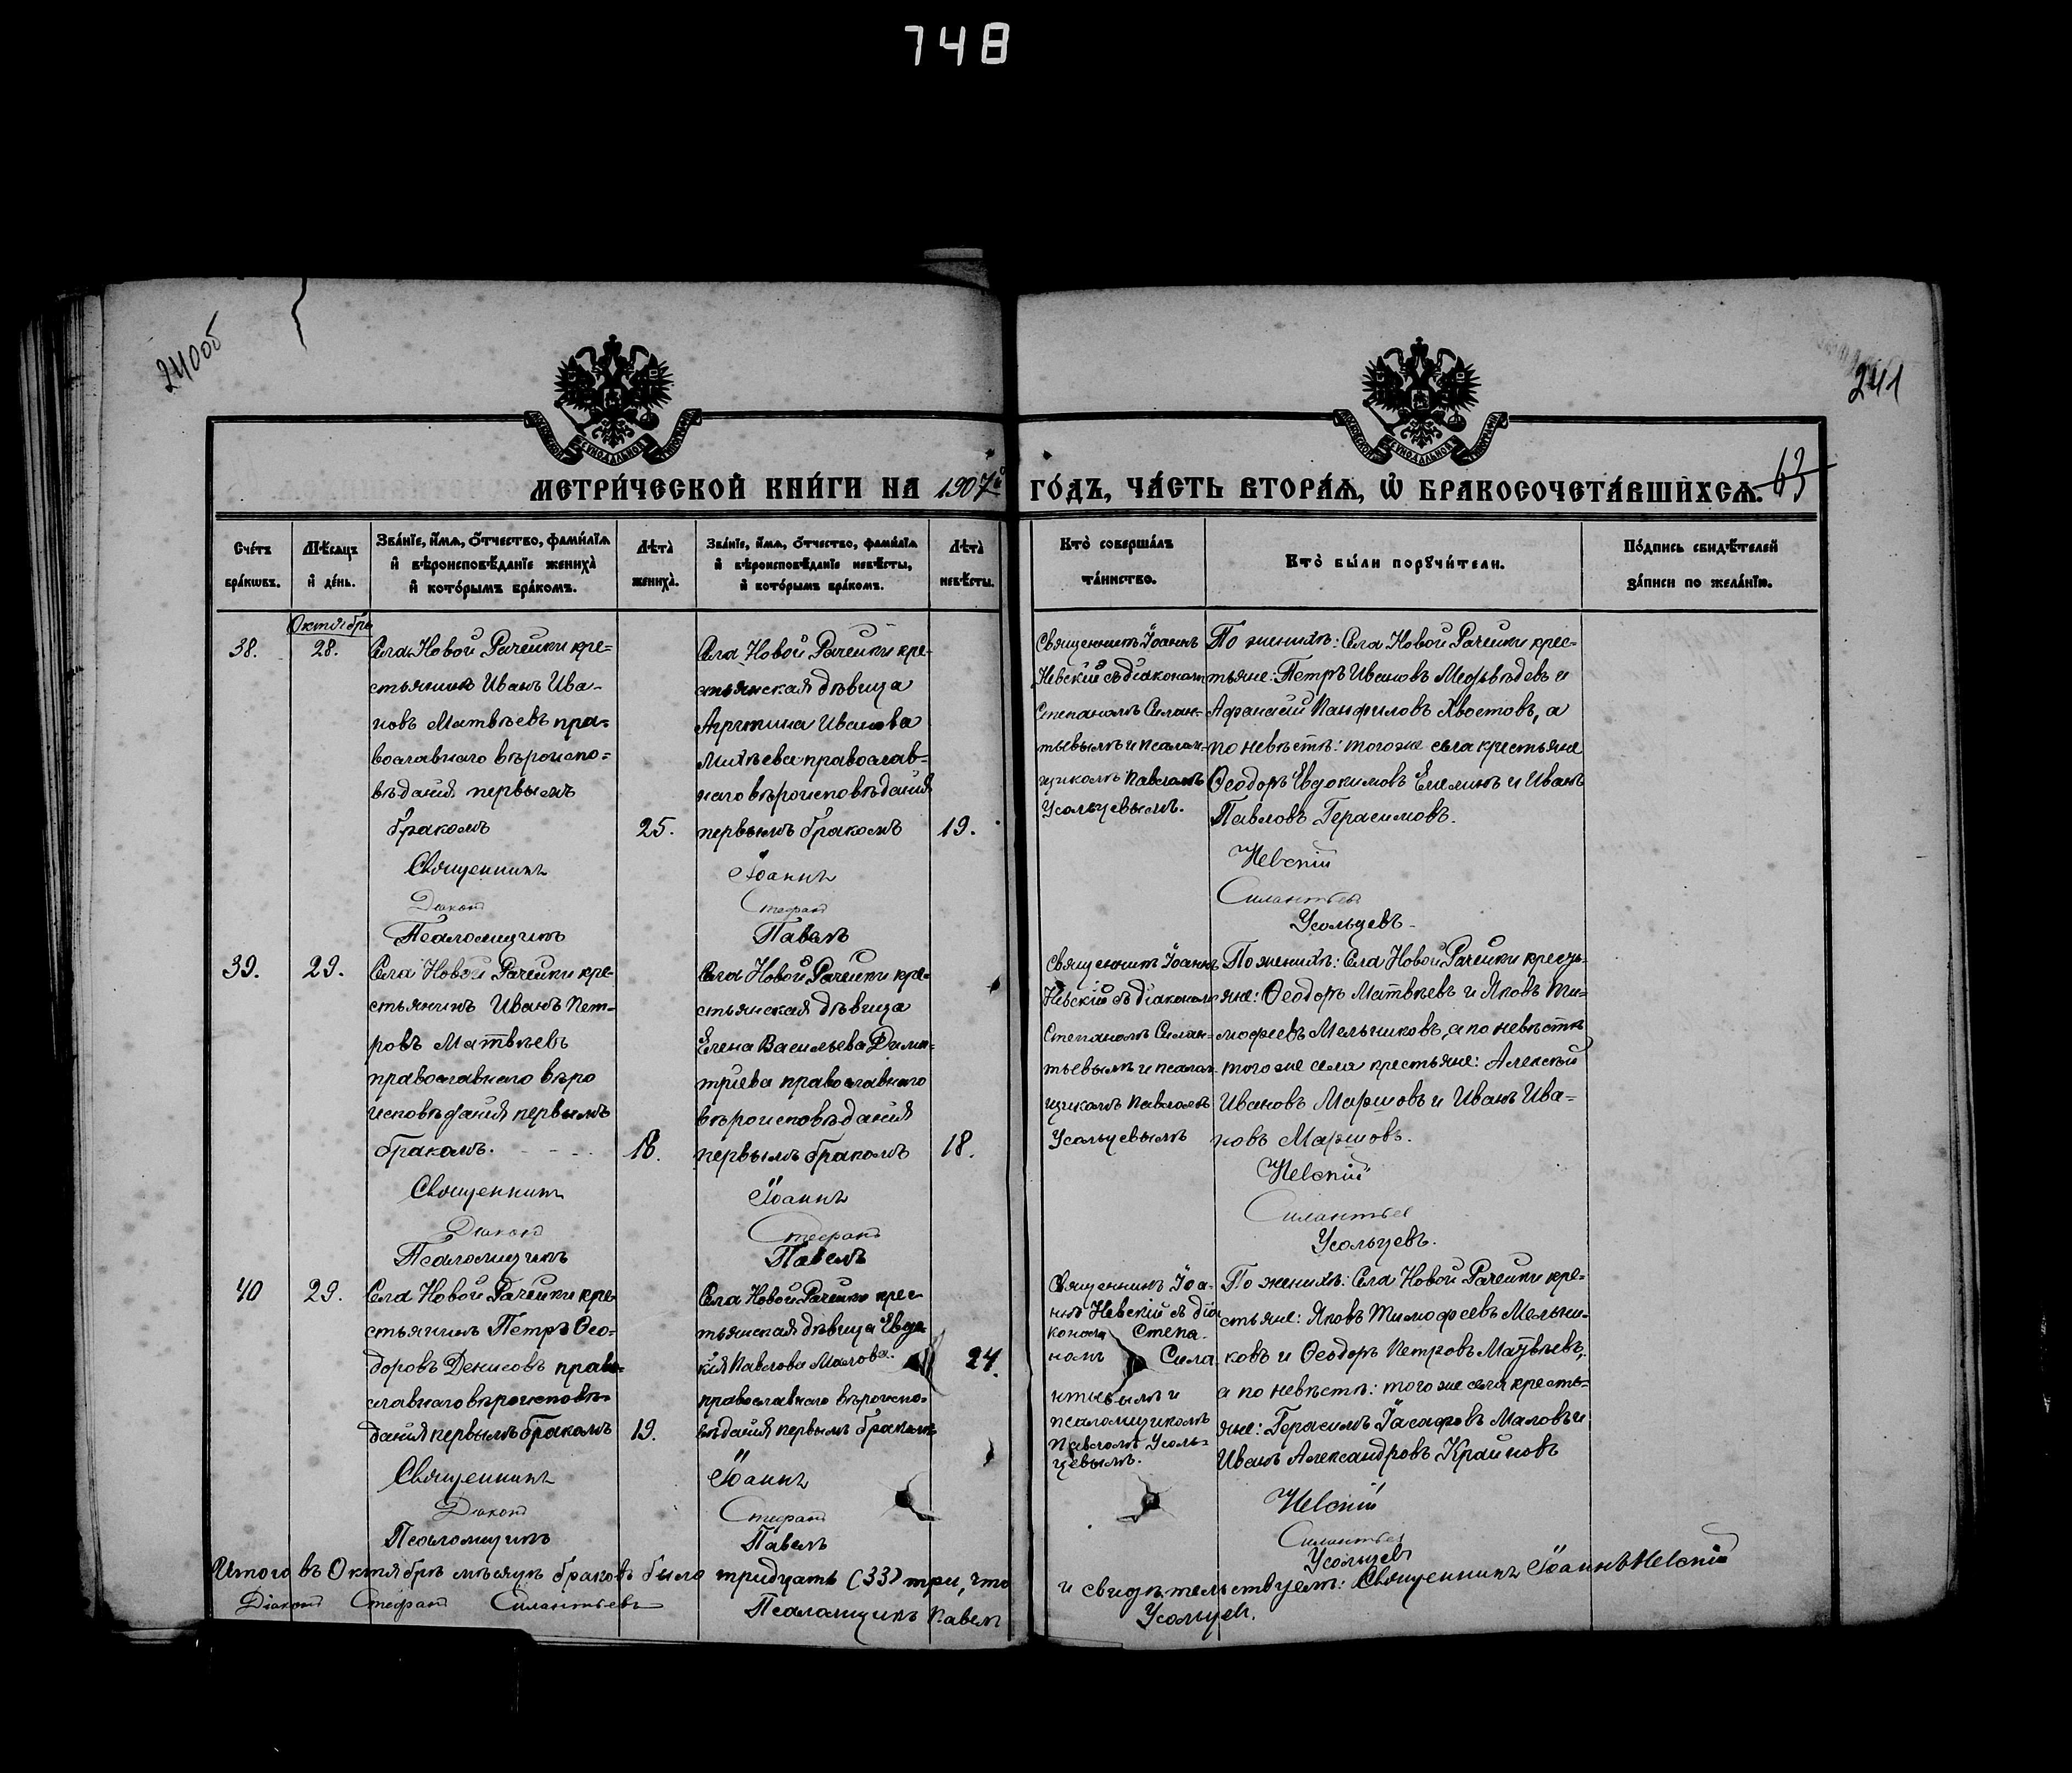 748
240об
241
МЕТРИ́ЧЕСКОЙ КНИ́ГИ НА 1907й ГО́ДЪ, ЧА́СТЬ ВТОРА́Я, Ѡ БРАКОСОЧЕТА́ВШИХСѦ.
63
Сче́тъ бра́кѡвъ.
Мѣ́сяцъ и де́нь.
Зва́нїе, и́мѧ, о́тчество, фами́лїѧ и вѣроисповѣ́данїе жениха̀ и кото́рымъ бра́комъ.
Лѣта̀ жениха̀.
Зва́нїе, и́мѧ, о́тчество, фами́лїѧ и вѣроисповѣ́данїе невѣ́сты, и кото́рымъ бра́комъ.
Лѣта̀ невѣ́сты.
Кто̀ соверша́лъ та́инство.
Кто̀ бы́ли порꙋчи́тели.
По́дпись свидѣ́телей за́писи по жела́нїю.
Октябрь
38.
28.
Села Новой Рачейки кре-
стьянинъ Иванъ Ива-
новъ Матвѣевъ пра-
вославнаго вѣроиспо-
вѣданія первымъ
бракомъ
25.
Села Новой Рачейки кре-
стьянская дѣвица
Агрипина Иванова
Михѣева православ-
наго вѣроисповѣданія
первымъ бракомъ
19.
Священникъ Іоаннъ
Невскій съ діакономъ
Степаномъ Силан-
тьевымъ и псалом-
щикомъ Павломъ
Усольцевымъ.
По женихѣ: Села Новой Рачейки крес-
тьяне: Петръ Ивановъ Медвѣдевъ и
Афанасій Панфиловъ Хвостовъ, а
по невѣстѣ: того же села крестьяне
Ѳеодоръ Евдокимовъ Емелинъ и Иванъ
Павловъ Герасимовъ.
Священникъ Іоаннъ Невскій
Діаконъ Стефанъ Силантьев
Псаломщикъ Павелъ Усольцевъ.
39.
29.
Села Новой Рачейки кре-
стьянинъ Иванъ Пет-
ровъ Матвѣевъ
православнаго вѣро
исповѣданія первымъ
бракомъ.
18.
Села Новой Рачейки кре-
стьянская дѣвица
Елена Васильева Дими-
тріева православнаго
вѣроисповѣданія
первымъ бракомъ
18.
Священникъ Іоаннъ
Невскій съ діакономъ
Степаномъ Силан-
тьевымъ и псалом-
щикомъ Павломъ
Усольцевымъ
По женихѣ: Села Новой Рачейки кресть-
яне: Ѳеодоръ Матвѣевъ и Яковъ Ти-
мофеевъ Мельниковъ, а по невѣстѣ
того же села крестьяне: Алексѣй
Ивановъ Маршовъ и Иванъ Ива-
новъ Маршовъ.
Священникъ Іоаннъ Невскій
Діаконъ Стефанъ Силантьев
Псаломщикъ Павелъ Усольцевъ.
40
29.
Села Новой Рачейки кре
стьянинъ Петръ Ѳео-
доровъ Денисовъ право-
славнаго вѣроисповѣ-
данія первымъ бракомъ
19.
Села Новой Рачейки крес-
тьянская дѣвица Евдо-
кія Павлова Малова.
православнаго вѣроиспо-
вѣданія первымъ бракомъ
24.
Священникъ Іоа-
ннъ Невскій съ діа
кономъ Степа-
номъ Сила
нтьевымъ и
псаломщикомъ
Павломъ Усоль-
цевымъ.
По женихѣ: Села Новой Рачейки кре-
стьяне: Яковъ Тимофеевъ Мельни-
ковъ и Ѳеодоръ Петровъ Матвѣевъ,
а по невѣстѣ: того же села кресть-
яне: Герасимъ Іасафовъ Маловъ и
Иванъ Александровъ Крайновъ
Священникъ Іоаннъ Невскій
Діаконъ Стефанъ Силантьев
Псаломщикъ Павелъ Усольцевъ
Итого въ Октябрѣ мѣсяцѣ браковъ было тридцать (33) три, что и свидѣтельствуемъ: Священникъ Іоаннъ Невскій
Діаконъ Стефанъ Силантьевъ Псаломщикъ Павелъ Усольцевъ.